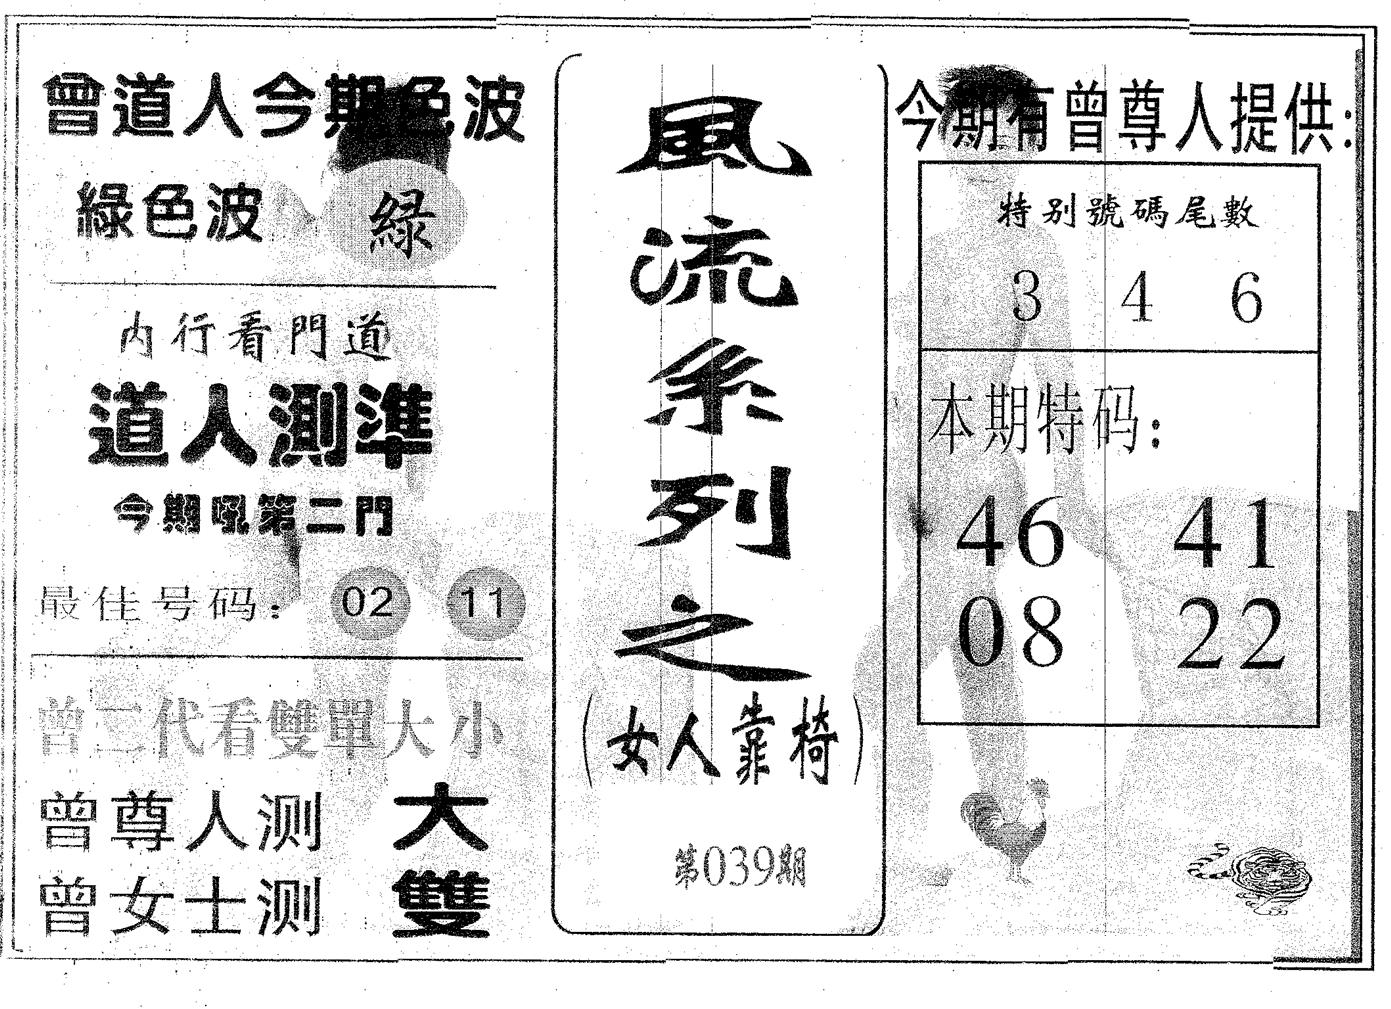 曾道人今期色波
綠色波
綠
內行看門道
道人測準
今期吼第二門
最佳号码：
02 11
曾二代看雙單大小
曾尊人测 大
曾女士测 雙
風流系列之
（女人靠椅）
第039期
今期有曾尊人提供:
特别號碼尾數
3 4 6
本期特码：
46 41
08 22